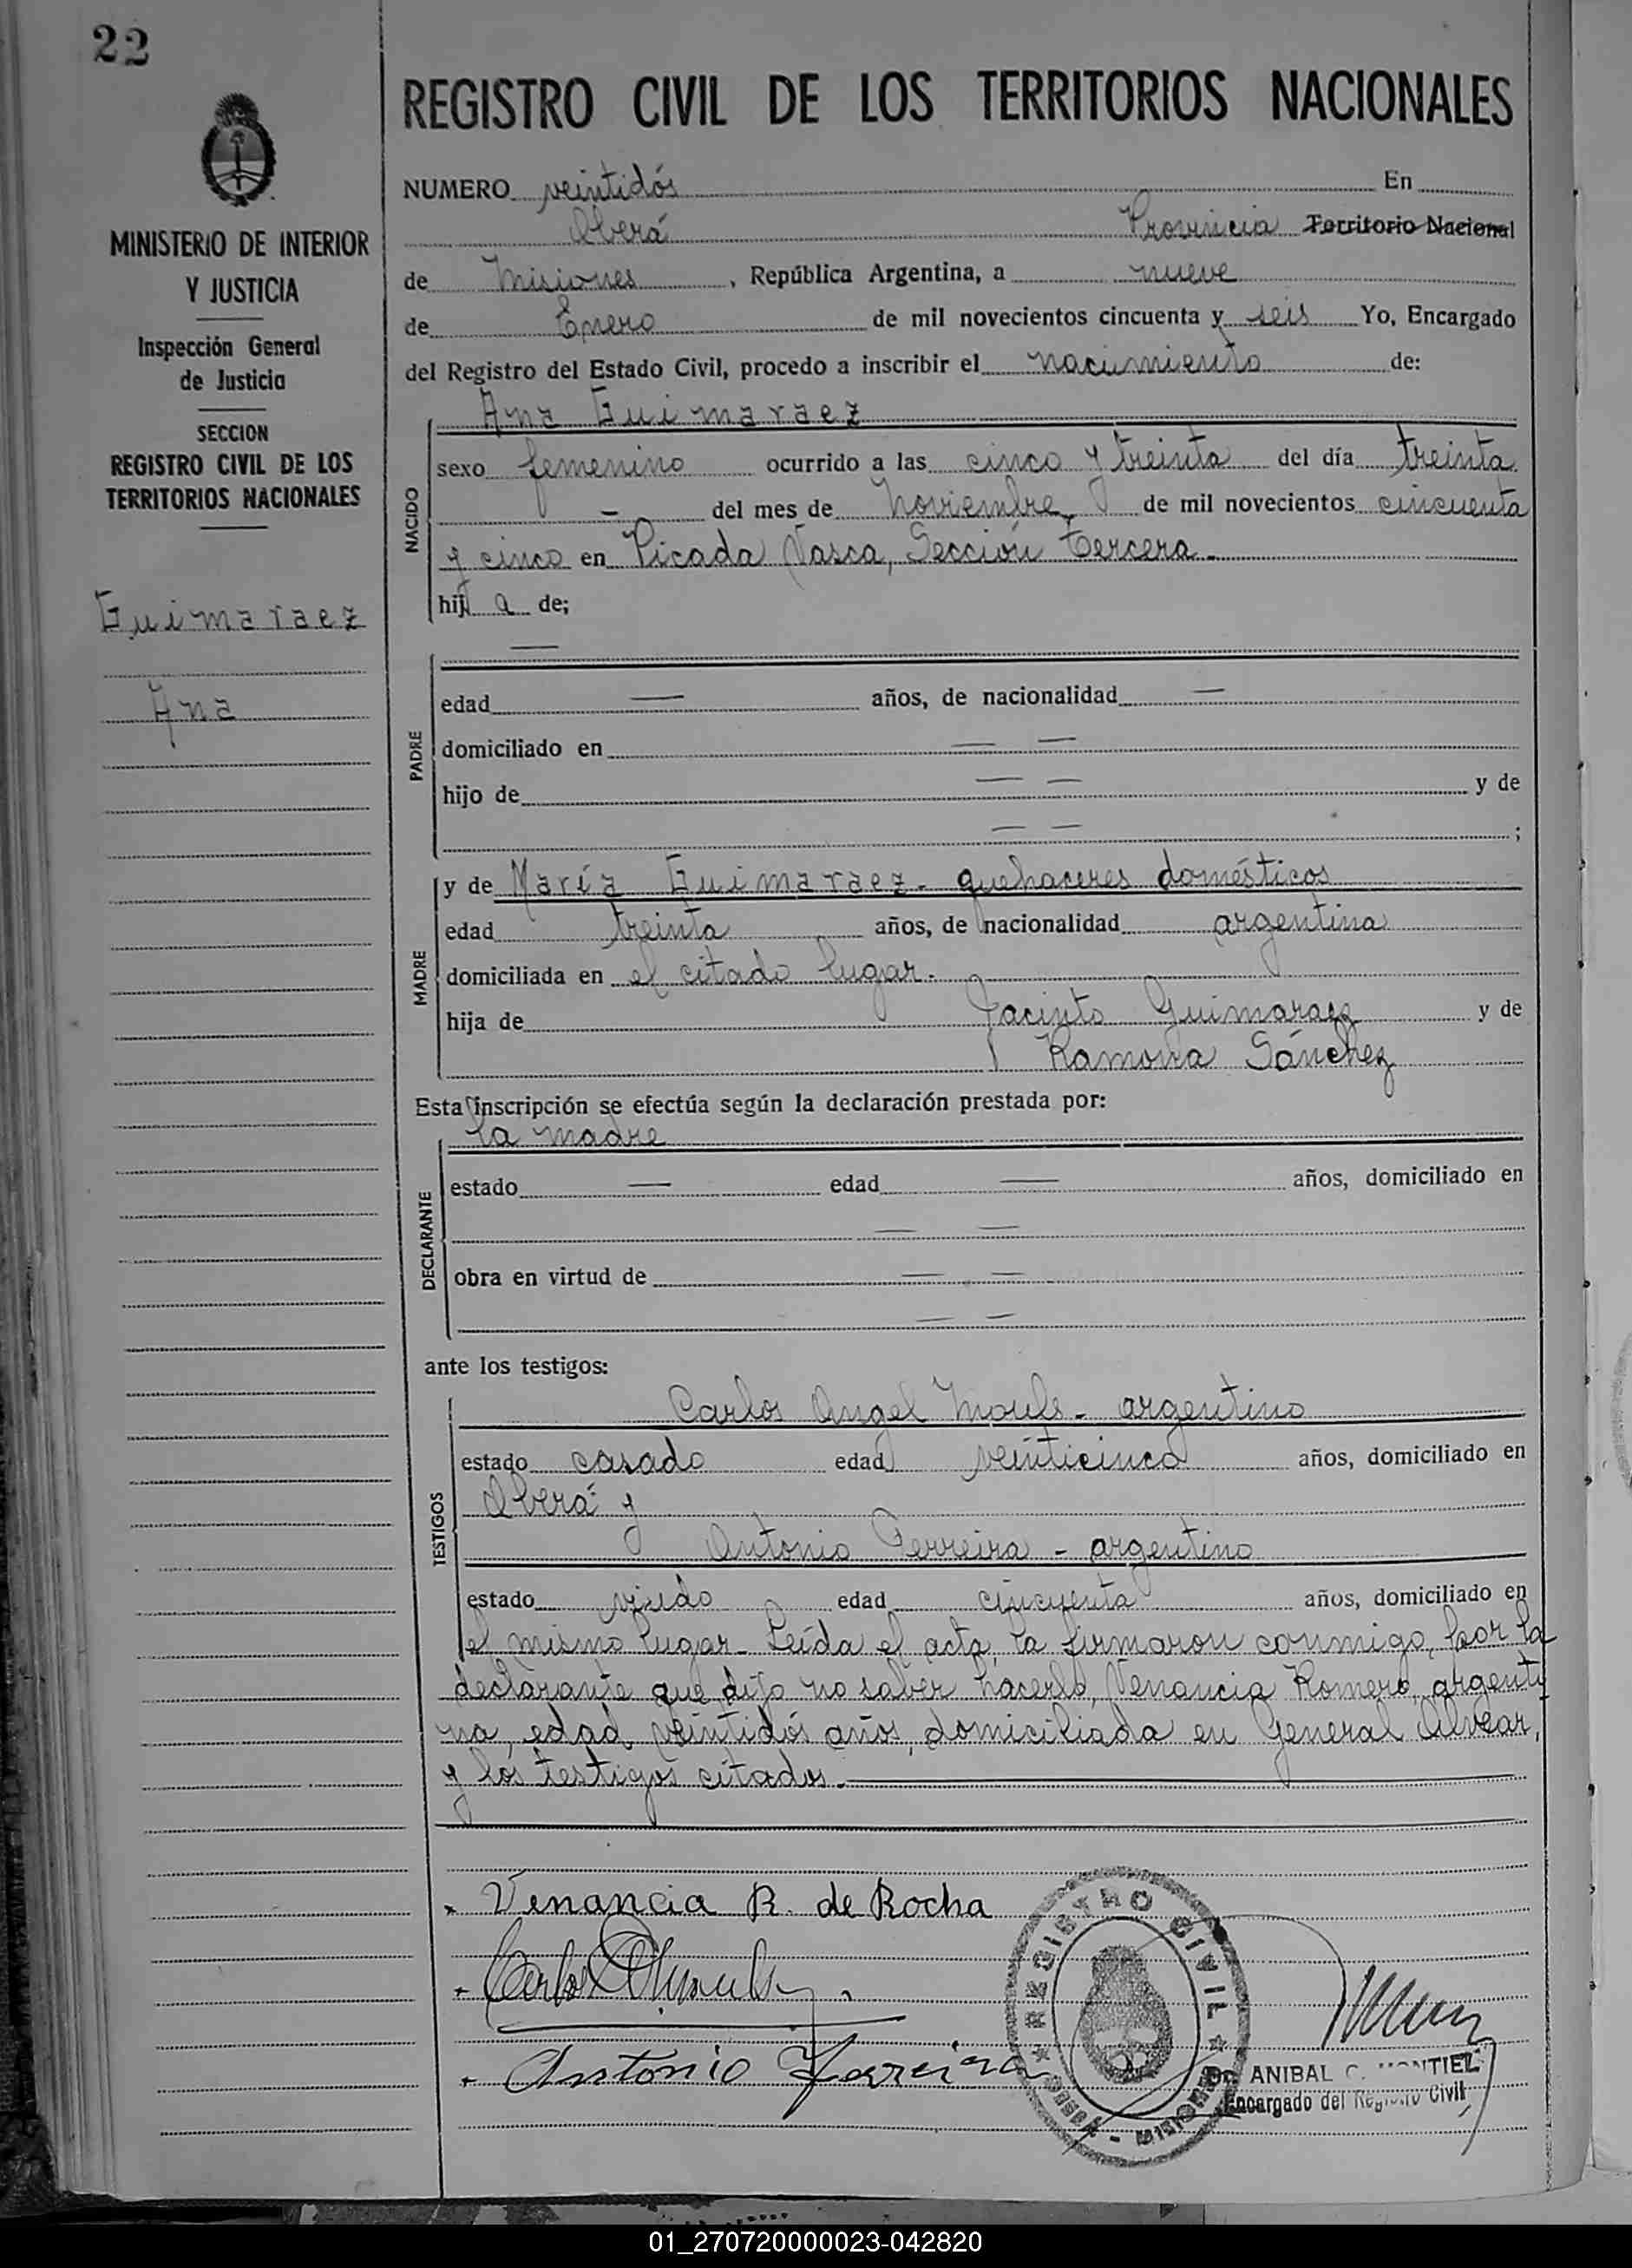 22
REGISTRO CIVIL DE LOS TERRITORIOS NACIONALES
MINISTERIO DE INTERIOR
Y JUSTICIA
Inspección General
de Justicia
SECCION
REGISTRO CIVIL DE LOS
TERRITORIOS NACIONALES
Guimaraez
Ana
NUMERO veintidós En
Oberá Provincia Territorio Nacional
de Misiones, República Argentina, a nueve
de Enero de mil novecientos cincuenta y seis Yo, Encargado
del Registro del Estado Civil, procedo a inscribir el nacimiento de:
NACIDO
Ana Guimaraez
sexo femenino ocurrido a las cinco y treinta del día treinta
— del mes de Noviembre de mil novecientos cincuenta
y cinco en Picada Vasca, Sección Tercera.
hija de;
PADRE
—
edad — años, de nacionalidad —
domiciliado en — —
hijo de — — y de
— — ;
MADRE
y de María Guimaraez - quehaceres domésticos
edad treinta años, de nacionalidad argentina
domiciliada en el citado lugar.
hija de Jacinto Guimaraez y de
Ramona Sánchez
Esta inscripción se efectúa según la declaración prestada por:
DECLARANTE
la madre
estado — edad — años, domiciliado en
— —
obra en virtud de — —
— —
ante los testigos:
TESTIGOS
Carlos Angel - argentino
estado casado edad veinticinco años, domiciliado en
Oberá y
Antonio Ferreira - argentino
estado viudo edad cincuenta años, domiciliado en
el mismo lugar - Leída el acta, la firmaron conmigo, por la
declarante que dijo no saber hacerlo, Venancia Romero, argenti
na, edad veintidós años, domiciliada en General Alvear,
y los testigos citados.
Venancia R. de Rocha
Carlos
Antonio Ferreira
REGISTRO CIVIL
OBERA - MISIONES
Dr. ANIBAL C. MONTIEL
Encargado del Registro Civil
01_270720000023-042820